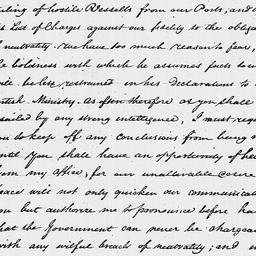 ling of hostile Vessells from our Ports; and
is List of Charges against our fidelity to the obliga
f neutrality. We have too much reason to fear,
le boldness with which he assumes facts to
will be less restrained in his Declarations to
British Ministry. As often therefore as you shall
assailed by any strong intelligence, I must reque
you to keep off any Conclusions from being
until You shall have an opportunity of he
from my office; for our unalterable desire
peace will not only quicken our communicati
you but authorize me to pronounce before han
that the Government can never be chargea
with any wilful breach of neutrality; and